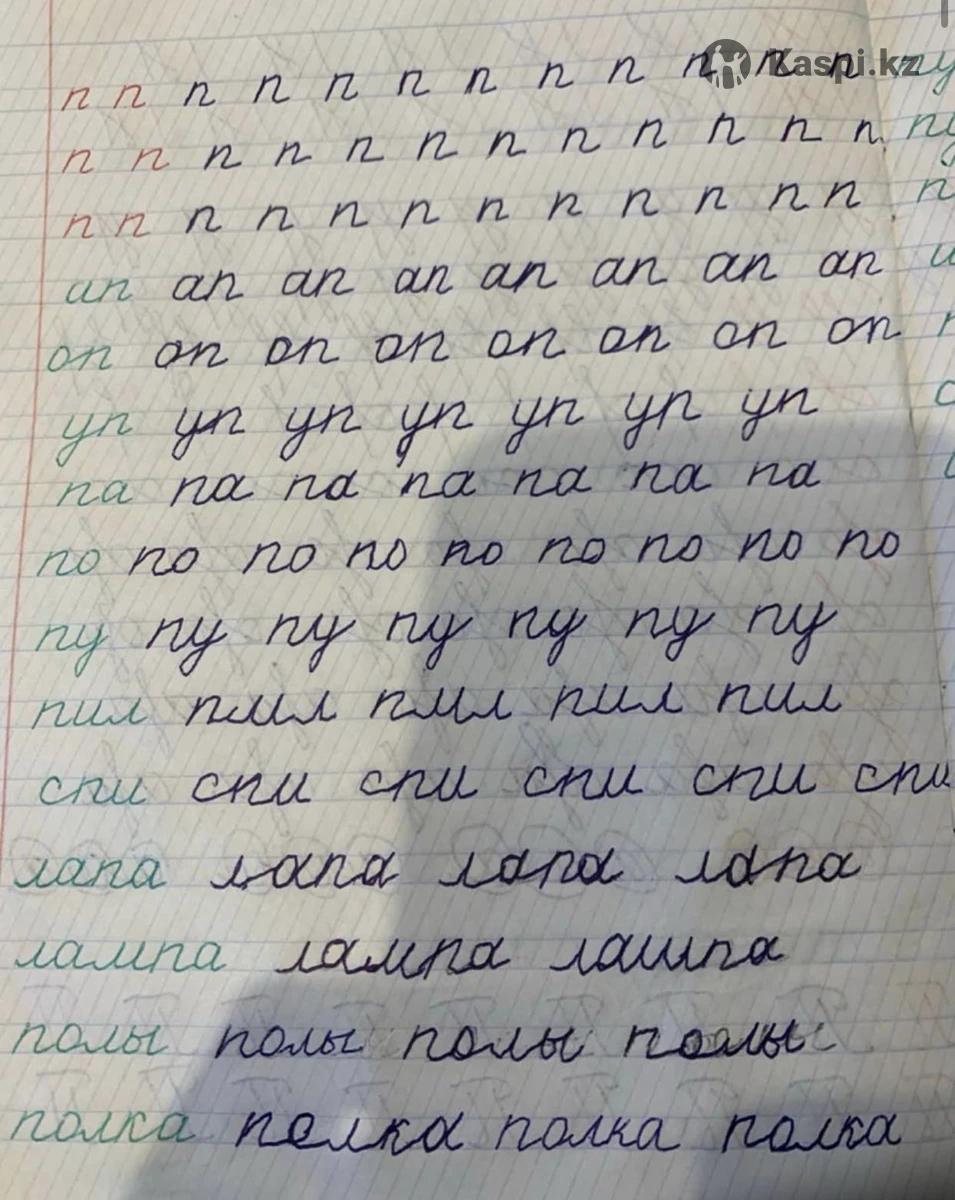 Kaspi.kz
п п п п п п п п п п п п пу
п п п п п п п п п п п п пу
п п п п п п п п п п п п п
ап ап ап ап ап ап ап ап
оп оп оп оп оп оп оп оп
уп уп уп уп уп уп уп
па па па па па па па
по по по по по по по по по
пу пу пу пу пу пу пу
пил пмл пмл пил пил
спи спи спи спи спи спи
лапа лапа лапа лапа
лампа лампа лашпа
полы полы полы полы
полка полка полка полка